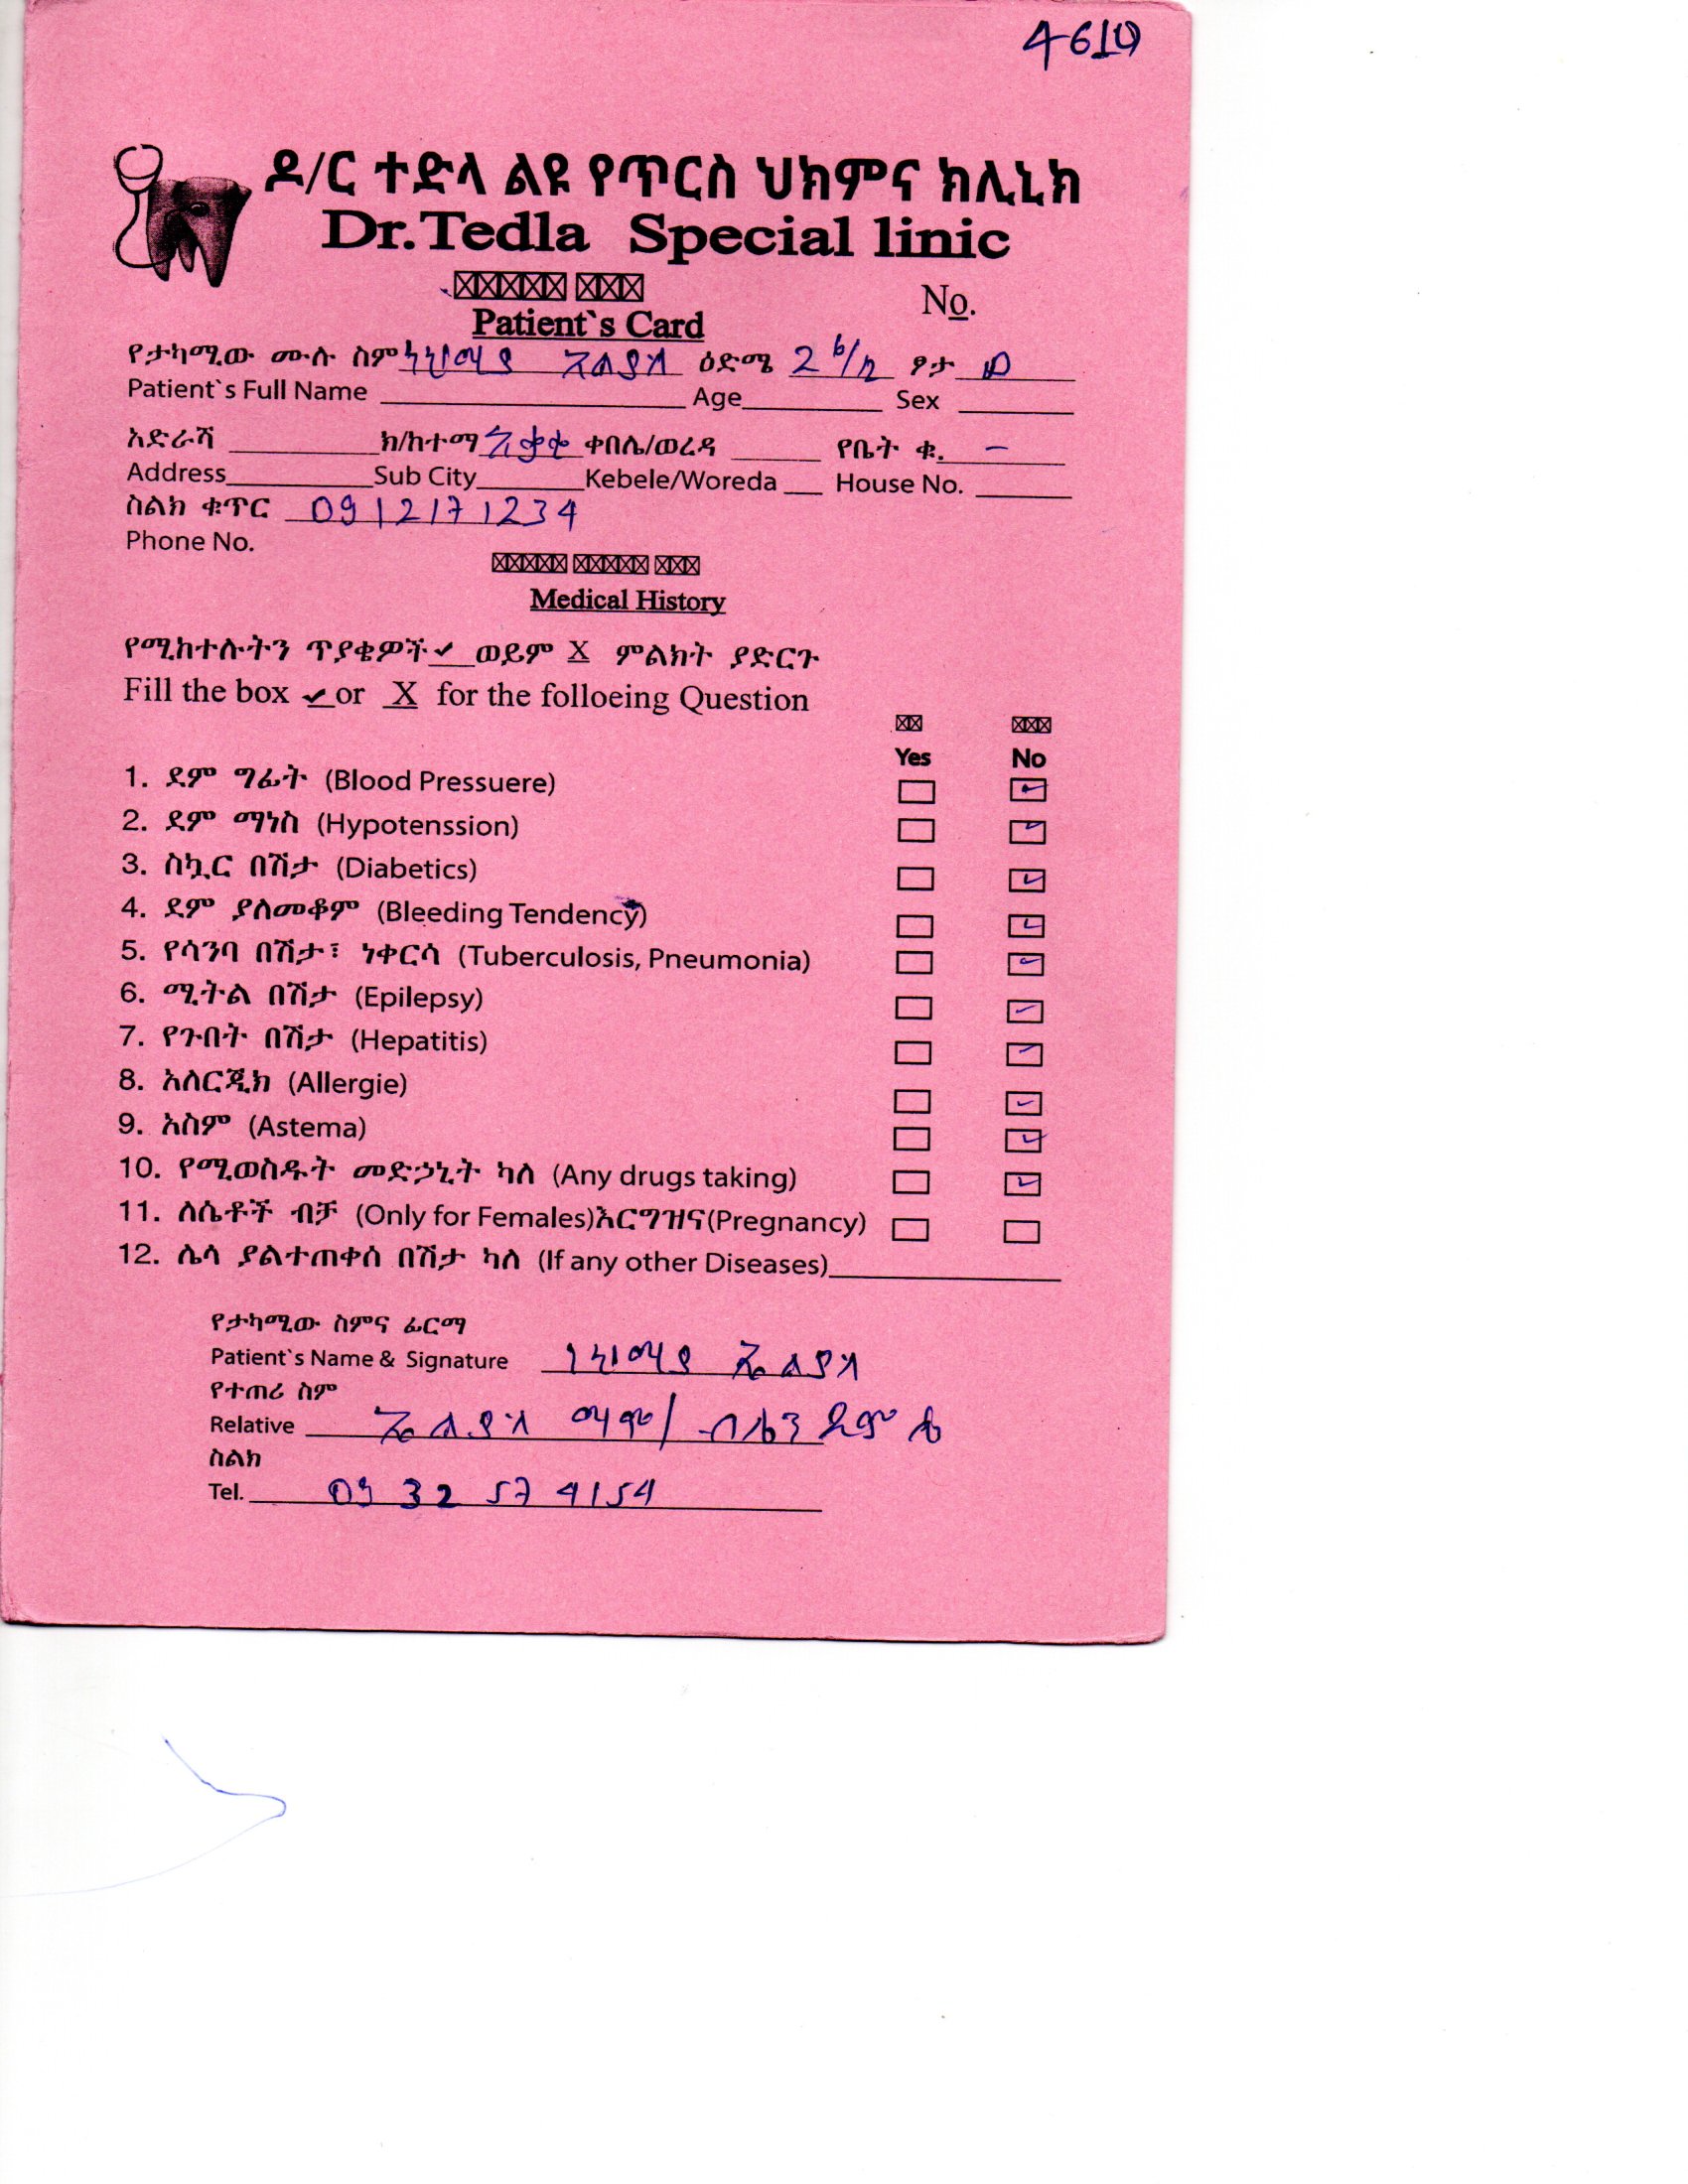 4610
ዶ/ር ተድላ ልዩ የጥርስ ህክምና ክሊኒክ
Dr.Tedla Special linic
No.
Patient`s Card
የታካሚው ሙሉ ስም ነህምያ ኤልያስ ዕድሜ 2 6/12 ፆታ ወ
Patient`s Full Name Age Sex
አድራሻ ክ/ከተማ አቃቂ ቀበሌ/ወረዳ የቤት ቁ. –
Address Sub City Kebele/Woreda House No.
ስልክ ቁጥር 0912171234
Phone No.
Medical History
የሚከተሉትን ጥያቄዎች ✓ ወይም X ምልክት ያድርጉ
Fill the box ✓ or X for the folloeing Question
Yes No
1. ደም ግፊት (Blood Pressuere)
2. ደም ማነስ (Hypotenssion)
3. ስኳር በሽታ (Diabetics)
4. ደም ያለመቆም (Bleeding Tendency)
5. የሳንባ በሽታ፣ ነቀርሳ (Tuberculosis, Pneumonia)
6. ሚትል በሽታ (Epilepsy)
7. የጉበት በሽታ (Hepatitis)
8. አለርጂክ (Allergie)
9. አስም (Astema)
10. የሚወስዱት መድኃኒት ካለ (Any drugs taking)
11. ለሴቶች ብቻ (Only for Females)እርግዝና(Pregnancy)
12. ሌላ ያልተጠቀሰ በሽታ ካለ (If any other Diseases)
የታካሚው ስምና ፊርማ
Patient`s Name & Signature ነህምያ ኤልያስ
የተጠሪ ስም
Relative ኤልያስ ማሞ/
ስልክ
Tel. 09 32 57 4154